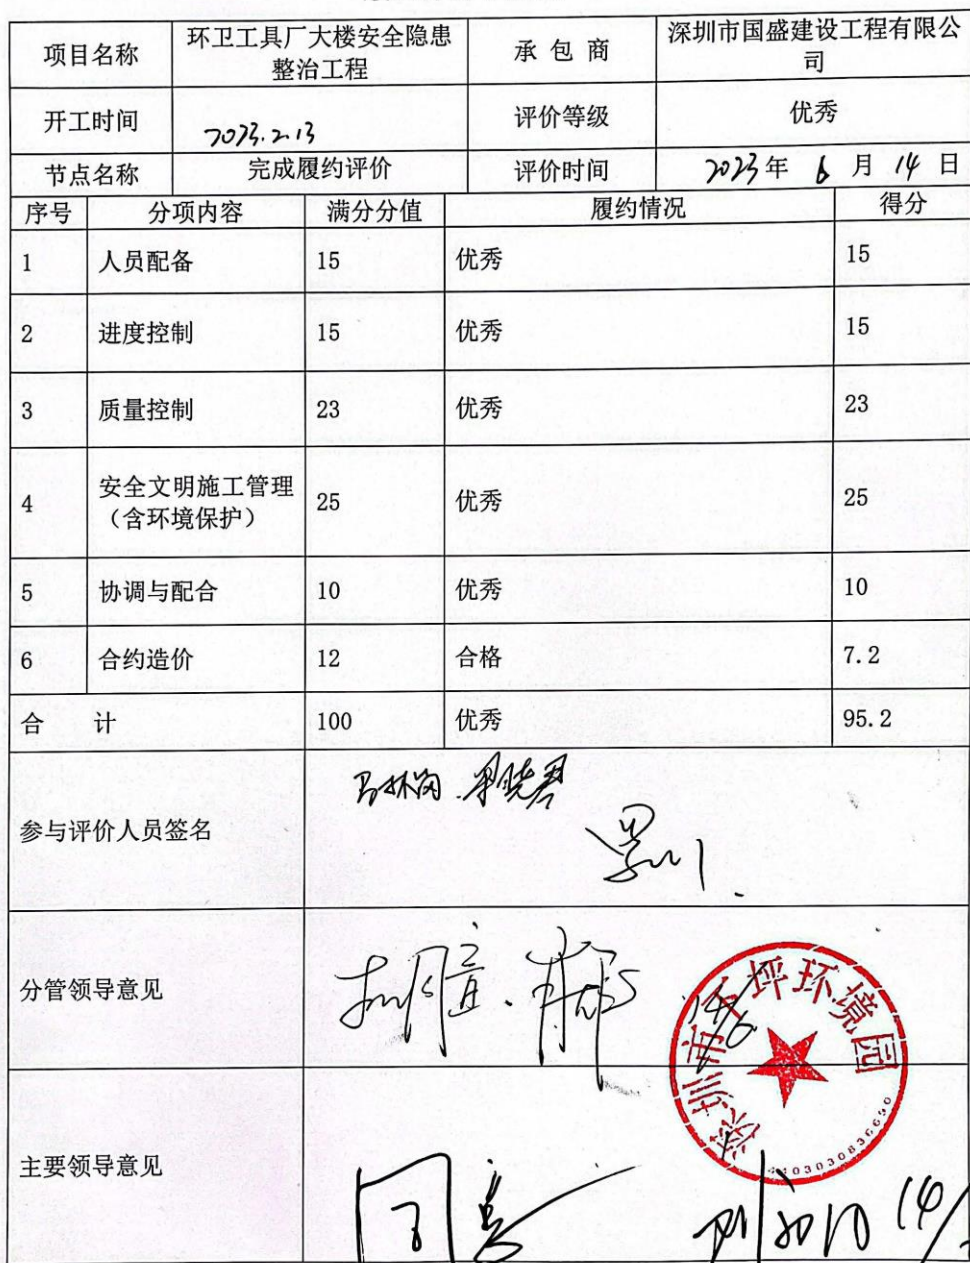 项目名称 环卫工具厂大楼安全隐患 承 包 商 深圳市国盛建设工程有限公
整治工程 司
开工时间 2023.2.13 评价等级 优秀
节点名称 完成履约评价 评价时间 2023年 6 月 14 日
序号 分项内容 满分分值 履约情况 得分
1 人员配备 15 优秀 15
2 进度控制 15 优秀 15
3 质量控制 23 优秀 23
4 安全文明施工管理 25 优秀 25
（含环境保护）
5 协调与配合 10 优秀 10
6 合约造价 12 合格 7.2
合 计 100 优秀 95.2
参与评价人员签名
分管领导意见
深圳市下坪环境园
主要领导意见
同意